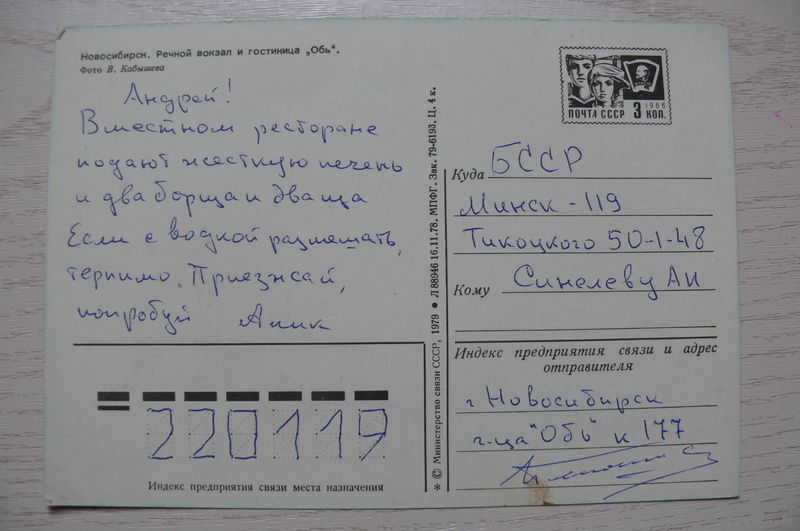 Новосибирск. Речной вокзал и гостиница „Обь“.
Фото В. Кабышева
Андрей!
В местном ресторане
подают жесткую печень
и два борща и два ща
Если с водкой размешать,
терпимо. Приезжай,
попробуй Алик
220119
Индекс предприятия связи места назначения
* © Министерство связи СССР, 1979 • Л 88946 16.11.78. МПФГ. Зак. 79-6193. Ц. 4 к.
1966
ПОЧТА СССР 3 КОП.
Куда БССР
Минск-119
Тикоцкого 50-1-48
Кому Синелеву АИ
Индекс предприятия связи и адрес
отправителя
г Новосибирск
г-ца "Обь" к 177